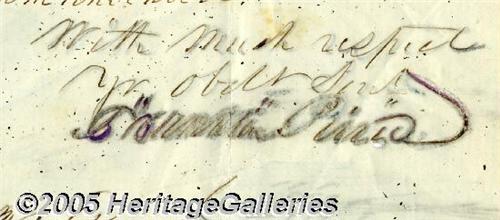 With much respect
Yr obdt Svt
Franklin Pierce
©2005 HeritageGalleries